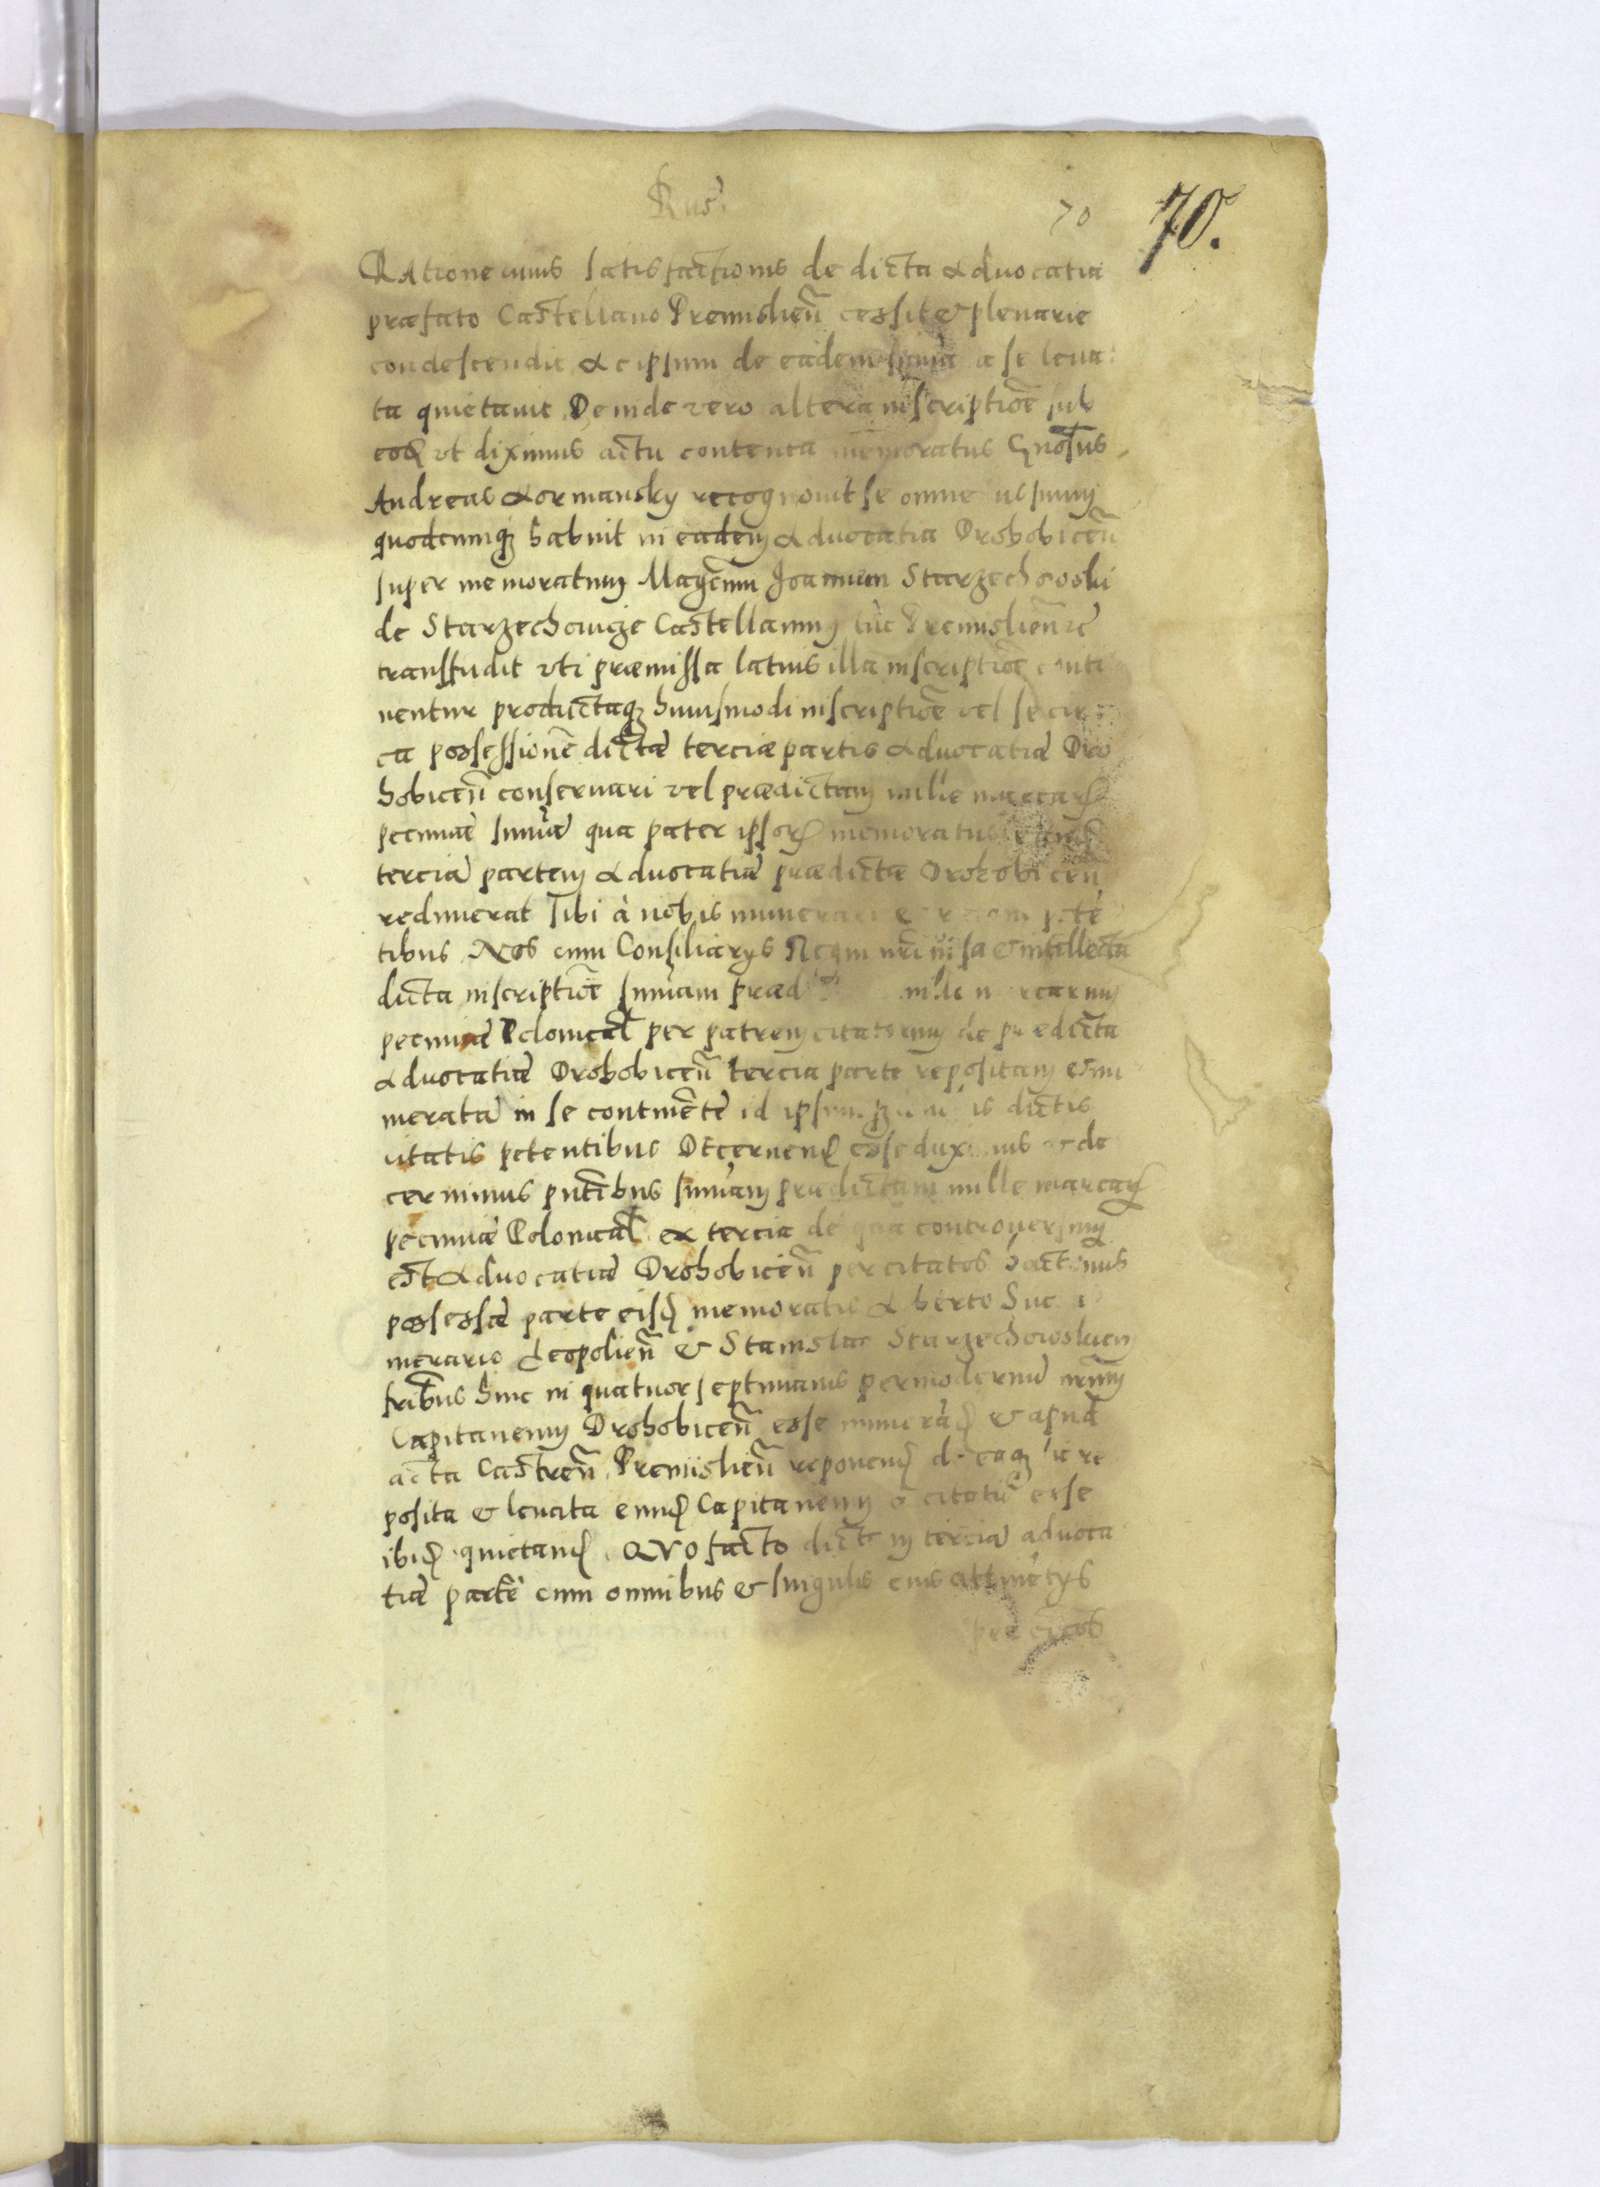 Rus:
70 70.
Ratione cuius satisfactionis de dicta Advocatia
præfato Castellano Premislień cessit et plenarie
condescendit Ac ipsum de eadem sumā a se leva
ta quietavit Deinde vero altera inscriptiōe sub
eođ ut diximus actu contenta memoratus Gnosus
Andreas Kormansky recognovit se omne ius suum
quodcumq; habuit in eadem Advocatia Drohobiceń
super memoratum Magcum Joannem Starzechowski
de Starzechowicze Castellanum tūc Premislieńse
transfudit uti præmissa latius illa inscriptiōe conti
nentur productaq; huiusmodi inscriptiōe vel se cir
ca possessionē dictæ terciæ partis Advocatiæ Dro
hobiceń conservari vel prædictam mille marcar
pecuniæ sumā qua pater ipsor memoratus
terciā partem Advocatiæ prædictæ Drohobiceń
redimerat sibi à nobis numerari et petē
tibus Nos cum Consiliarys Regni nri visa et intellecta
dicta inscriptiōe summam præd mille marcarum
pecuniæ Polonical per patrem citatorum de prædicta
Advocatiæ Drohobiceń tercia parte repositam et nu
meratā in se continētē id ipsum dictis
citatis petentibus Decernenđ esse duximus et de
cernimus pntibus summam prædictam mille marcar
pecuniæ Polonical ex tercia de qua controversum
est Advocatiæ Drohobiceń per citatos hactenus
possessæ parte eisđ memoratis Alberto Succa
merario Leopolień et Stanislao Starzechowskiem
fribus hinc in quatuor septimanis per modernū nrum
Capitaneum Drohobiceń esse numerāđ et apud
acta Castreń Premislień reponenđ de eaq; sic re
posita et levata eunđ Capitaneum citatū esse
ibiđ quietanđ Quo facto dictam terciā advoca
tiæ partē cum omnibus et singulis eius attinētys
per citatos